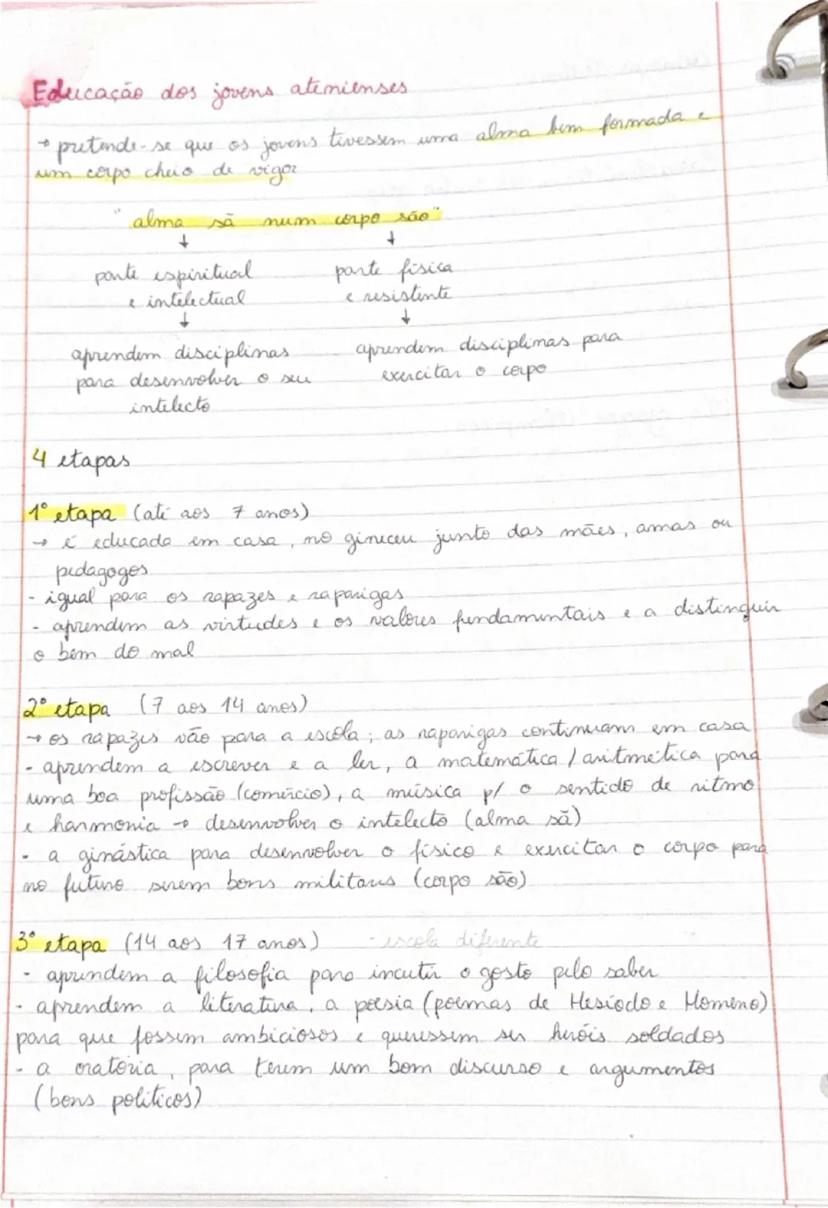 Educação dos jovens atenienses
→ pretende-se que os jovens tivessem uma alma bem formada e
um corpo cheio de vigor
"alma sã num corpo são"
↓ ↓
parte espiritual parte física
e intelectual e resistente
↓ ↓
aprendem disciplinas aprendem disciplinas para
para desenvolver o seu exercitar o corpo
intelecto
4 etapas
1º etapa (até aos 7 anos)
→ é educada em casa, no gineceu junto das mães, amas ou
pedagogos
- igual para os rapazes e raparigas
- aprendem as virtudes e os valores fundamentais e a distinguir
o bem do mal
2º etapa (7 aos 14 anos)
→ os rapazes vão para a escola; as raparigas continuam em casa
- aprendem a escrever e a ler, a matemática / aritmética para
uma boa profissão (comércio), a música p/ o sentido de ritmo
e harmonia → desenvolver o intelecto (alma sã)
- a ginástica para desenvolver o físico e exercitar o corpo para
no futuro serem bons militares (corpo são)
3º etapa (14 aos 17 anos) - escola diferente
- aprendem a filosofia para incutir o gosto pelo saber
- aprendem a literatura, a poesia (poemas de Hesíodo e Homero)
para que fossem ambiciosos e quisessem ser heróis soldados
- a oratória, para terem um bom discurso e argumentos
(bons políticos)